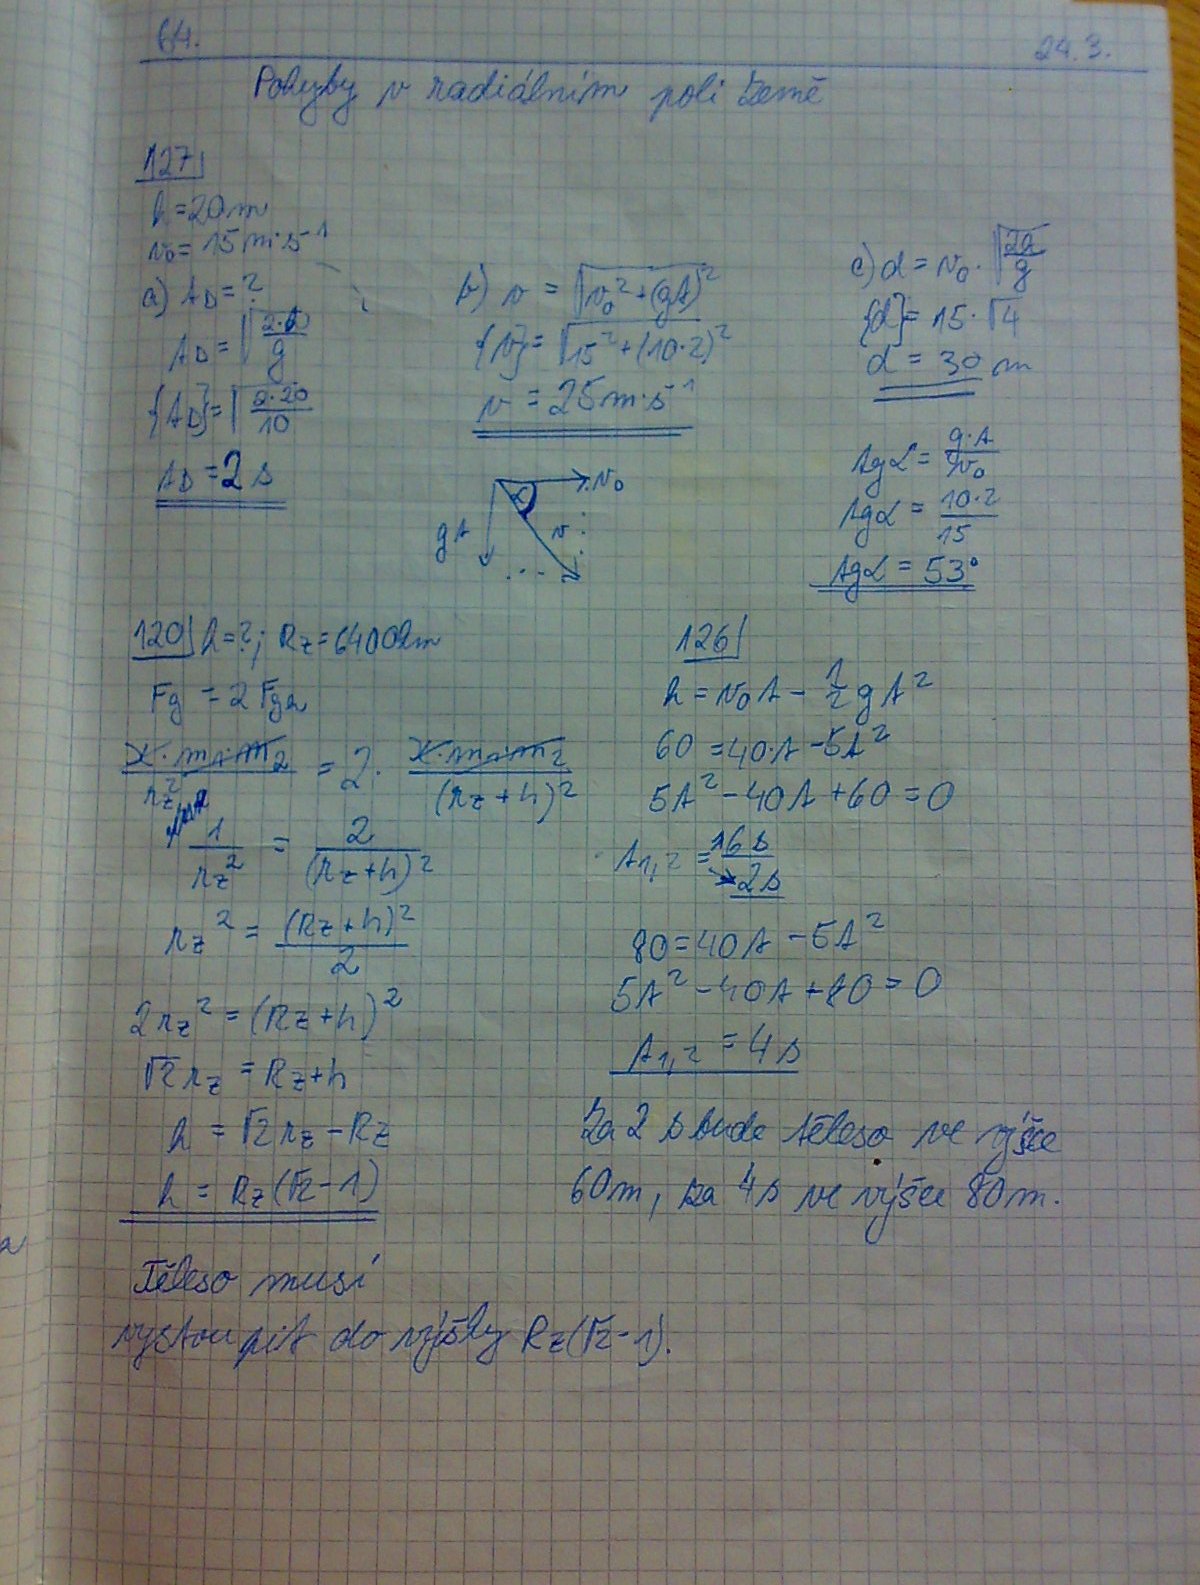 64. 24.3.
Pohyby v radiálním poli Země
127
h = 20 m
v₀ = 15 m·s⁻¹
a) t_D = ?
t_D = √(2·h/g)
{t_D} = √(2·20/10)
t_D = 2 s
b) v = √(v₀² + (gt)²)
{v} = √(15² + (10·2)²)
v = 25 m·s⁻¹
v₀
α
gt
v
c) d = v₀ · √(2h/g)
{d} = 15 · √4
d = 30 m
tgα = g·t/v₀
tgα = 10·2/15
tgα = 53°
120 h = ?; R_z = 6400 km
F_g = 2 F_gh
ϰ·m₁·m₂/r_z² = 2 · ϰ·m₁·m₂/(r_z + h)²
1/r_z² = 2/(r_z + h)²
r_z² = (R_z + h)²/2
2r_z² = (R_z + h)²
√2 r_z = R_z + h
h = √2 r_z − R_z
h = R_z(√2 − 1)
Těleso musí
vystoupit do výšky R_z(√2 − 1).
126
h = v₀t − 1/2 gt²
60 = 40·t − 5t²
5t² − 40t + 60 = 0
t₁,₂ = 6 s
2 s
80 = 40t − 5t²
5t² − 40t + 80 = 0
t₁,₂ = 4 s
Za 2 s bude těleso ve výšce
60m, za 4s ve výšce 80m.